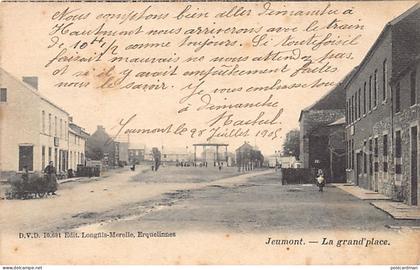 Nous comptons bien aller dimanche à
Hautmont nous arriverons avec le train
de 10 h 1/2 comme toujours. Si toutefois il
faisait mauvais ne nous attendez pas
et s'il y avait empêchement faites
nous le savoir. En vous embrassant
à dimanche
Rachel
Jeumont le 28 Juillet 1905.
D.V.D. 10.691 Edit. Longfils-Merelle, Erquelinnes
Jeumont. — La grand'place.
postcardman